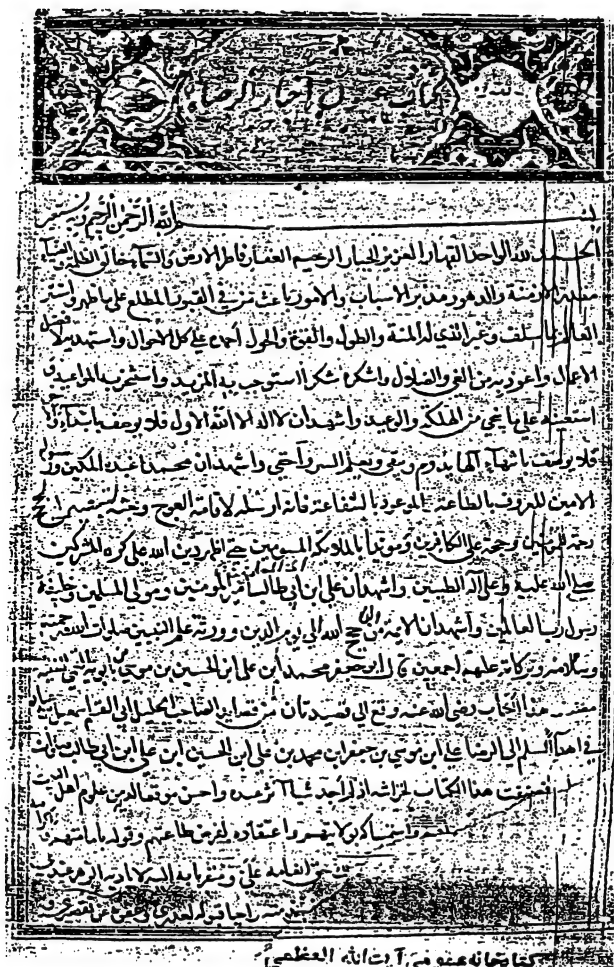 كتاب عيون اخبار الرضا
بسم الله الرحمن الرحيم وبه نستعين
الحمد لله الواحد القهار العزيز الجبار الرحيم الغفار فاطر الارض والسماء خالق الظلمة والضياء
مقدر الازمنة والدهور مدبر الاسباب والامور باعث من في القبور المطلع على ما ظهر واستتر
العالم بما سلف وغبر الذي له المنة والطول والقوة والحول احمده على كل الاحوال واستهديه لافضل
الاعمال واعوذ به من الغي والضلال واشكره شكرا استوجب به المزيد واستنجز به المواعيد
واستعينه على ما ينجي من الهلكة والوعيد واشهد ان لا اله الا الله الاول فلا يوصف بابتداء والآخر
فلا يوصف بانتهاء الها يدوم ويبقى ويعلم السر واخفى واشهد ان محمدا عبده المكين ورسوله
الامين المعروف بالطاعة الموعود بالشفاعة فانه ارسله لاقامة العوج وبعثه لنصب الحجج
رحمة للمؤمنين وحجة على الكافرين ومؤيدا بالملائكة المسومين حتى اظهر دين الله على كره المشركين
صلى الله عليه وعلى آله الطيبين واشهد ان علي ابن ابي طالب امير المؤمنين ومولى المسلمين وخليفة
رسول رب العالمين واشهد ان الائمة من حجج الله الى يوم الدين وورثة علم النبيين صلوات الله ورحمته
وسلامه وبركاته عليهم اجمعين قال ابو جعفر محمد ابن علي ابن الحسين بن موسى بن بابويه الفقيه
هذا الكتاب رضي الله عنه وقع الي قصيدتان من قصائد الصاحب الجليل ابي القسم اسمعيل
في اهداء السلم الى الرضا علي ابن موسى بن جعفر ابن محمد بن علي ابن الحسين ابن علي ابن ابي طالب
فصنفت هذا الكتاب لخزانته اذ لم اجد شيئا آثر عنده واحسن موقعا لديه من علوم اهل البيت
واستمساكه بولايتهم واعتقاده لفرض طاعتهم وقوله بامامتهم
كتابخانه عمومى آيت الله العظمى